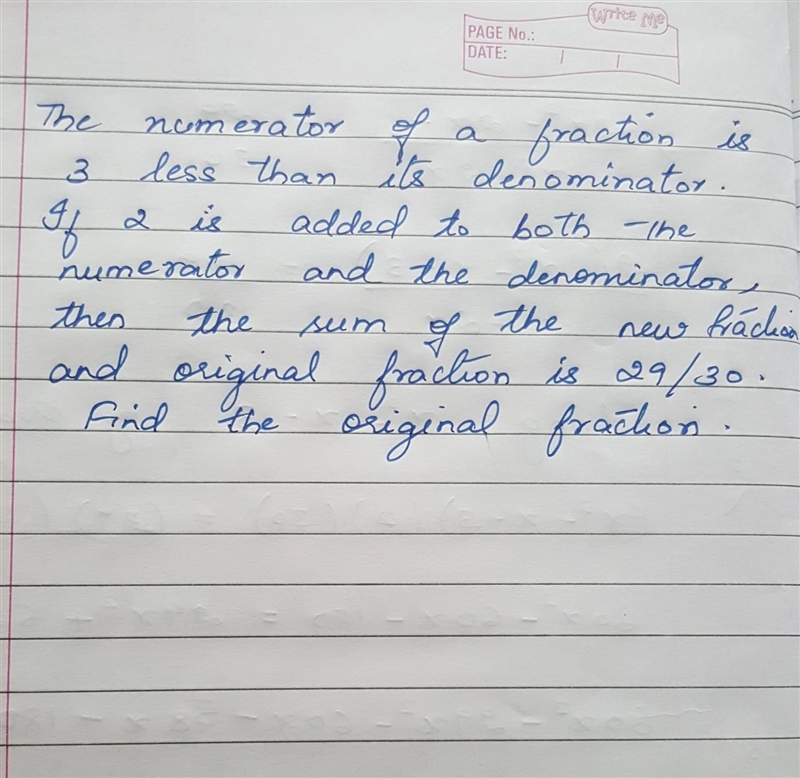 Write Me
PAGE No.:
DATE:
The numerator of a fraction is
3 less than its denominator.
If 2 is added to both the
numerator and the denominator,
then the sum of the new fraction
and original fraction is 29/30.
Find the original fraction.